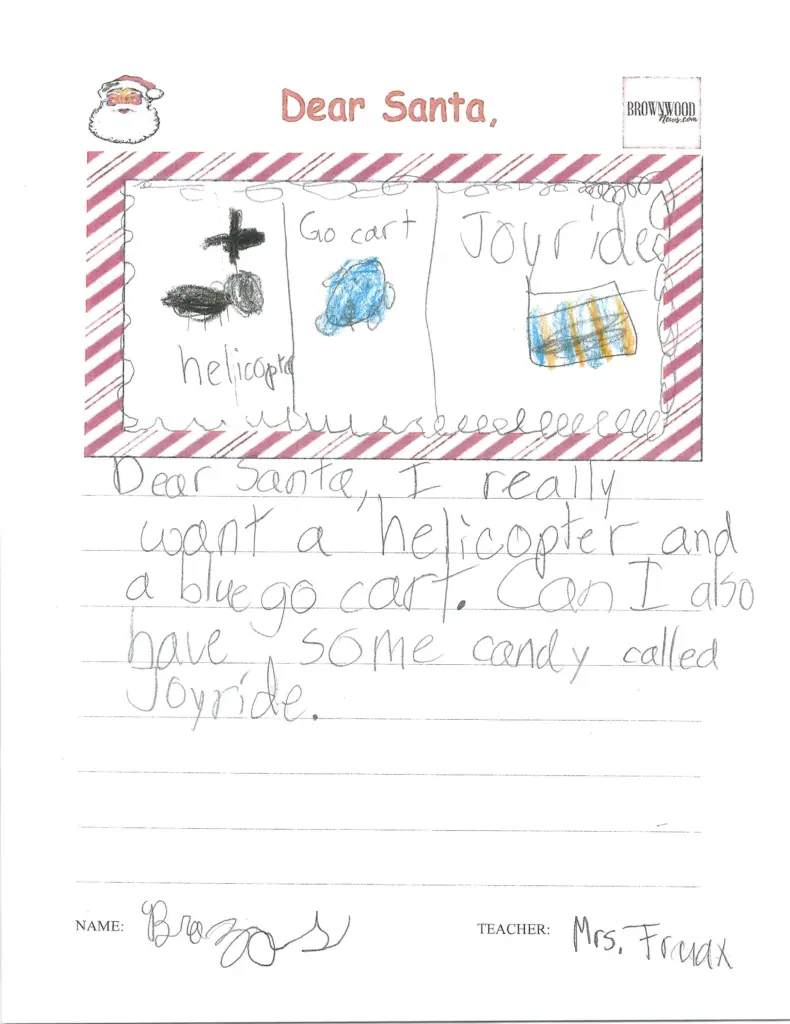 Dear Santa,
BROWNWOOD
News.com
Go cart
Joyride
helicopter
Dear Santa, I really
want a helicopter and
a blue go cart. Can I also
have some candy called
Joyride.
NAME: Brazos
TEACHER: Mrs.